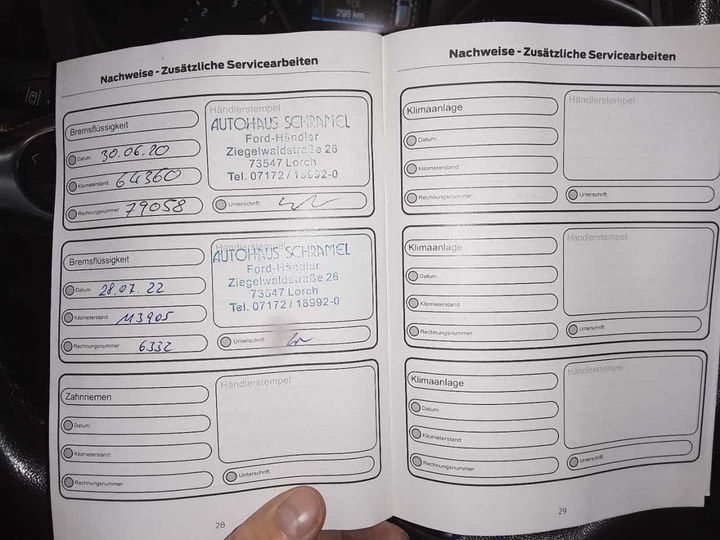 298 km
Nachweise - Zusätzliche Servicearbeiten
Bremsflüssigkeit
Datum: 30.06.20
Kilometerstand: 64360
Rechnungsnummer: 79058
Händlerstempel
AUTOHAUS SCHRAMEL
Ford-Händler
Ziegelwaldstraße 26
73547 Lorch
Tel. 07172 / 18992-0
Unterschrift:
Bremsflüssigkeit
Datum: 28.07.22
Kilometerstand: 113905
Rechnungsnummer 6332
Händlerstempel
AUTOHAUS SCHRAMEL
Ford-Händler
Ziegelwaldstraße 26
73547 Lorch
Tel. 07172 / 18992-0
Unterschrift:
Zahnriemen
Datum:
Kilometerstand:
Rechnungsnummer
Händlerstempel
Unterschrift:
28
Nachweise - Zusätzliche Servicearbeiten
Klimaanlage
Datum:
Kilometerstand:
Rechnungsnummer:
Händlerstempel
Unterschrift:
Klimaanlage
Datum:
Kilometerstand:
Rechnungsnummer:
Händlerstempel
Unterschrift:
Klimaanlage
Datum:
Kilometerstand:
Rechnungsnummer
Händlerstempel
Unterschrift:
29